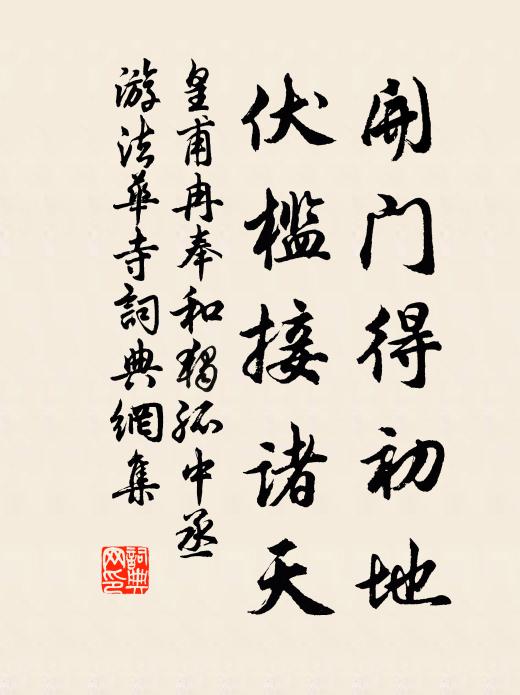 開門得初地
伏檻接諸天
皇甫冉奉和獨孤中丞
游法華寺詞典網集
詞典网印